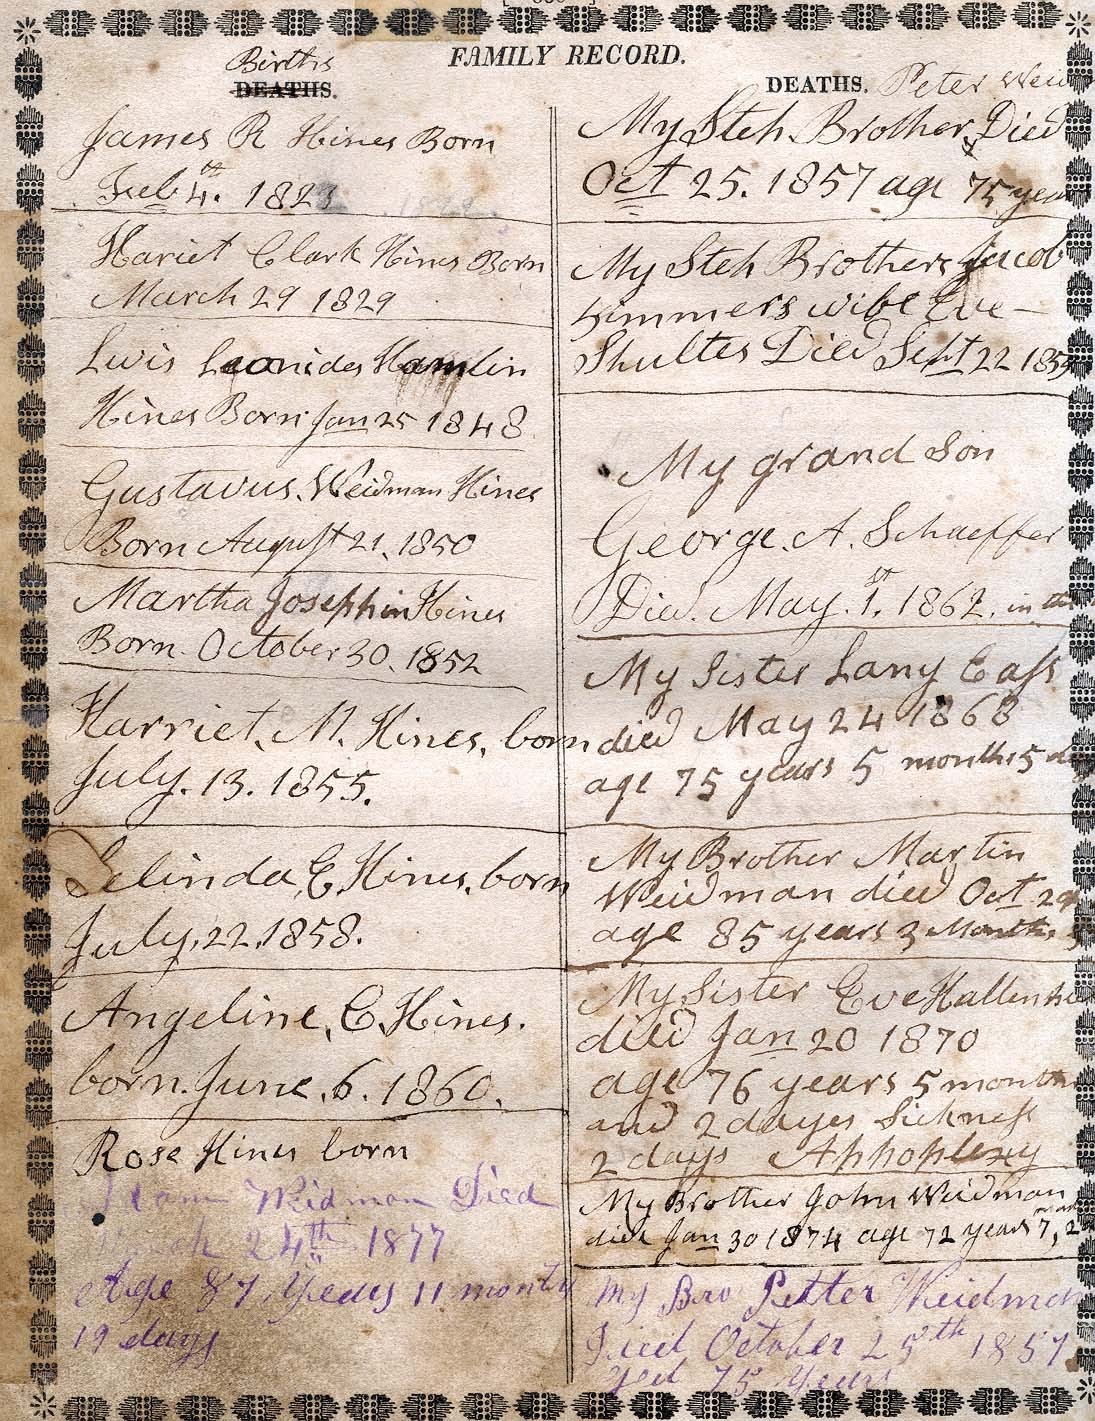 FAMILY RECORD.
Births
DEATHS.
James R Hines Born
Feb 4.th 1823
Hariet Clark Hines Born
March 29 1829
Lwis Leonides Hamlin
Hines Born Jan 25 1848
Gustavus. Weidman Hines
Born August 21. 1850
Martha Josephin Hines
Born. October 30. 1852
Harriet. M. Hines. born
July. 13. 1855.
Selinda, E Hines. born
July, 22, 1858.
Angeline, C. Hines.
born. June. 6. 1860.
Rose Hines born
Weidman Died
24th 1877
Age 87 Years 11 months
19 days
DEATHS. Peter
My Steh Brother Died
Oct 25. 1857 age 75 years
My Steh Brothers Jacob
Zimmers wife Eve
Shultes Died Seht 22 1859
My grand Son
George. A. Schaeffer
Died. May. 1.st 1862. in the
My Sister Lany Bass
died May 24 1868
age 75 years 5 months 5
My Brother Martin
Weidman died Oct 29
age 85 years 3 Months
My Sister Eve
died Jan 20 1870
age 76 years 5 months
and 2 dayes Sickness
2 days Aphoplexy
My Brother John Weidman
died Jan 30 1874 age 72 years 7,
My Bro Petter Weidman
Died October 25th 1857
75 years